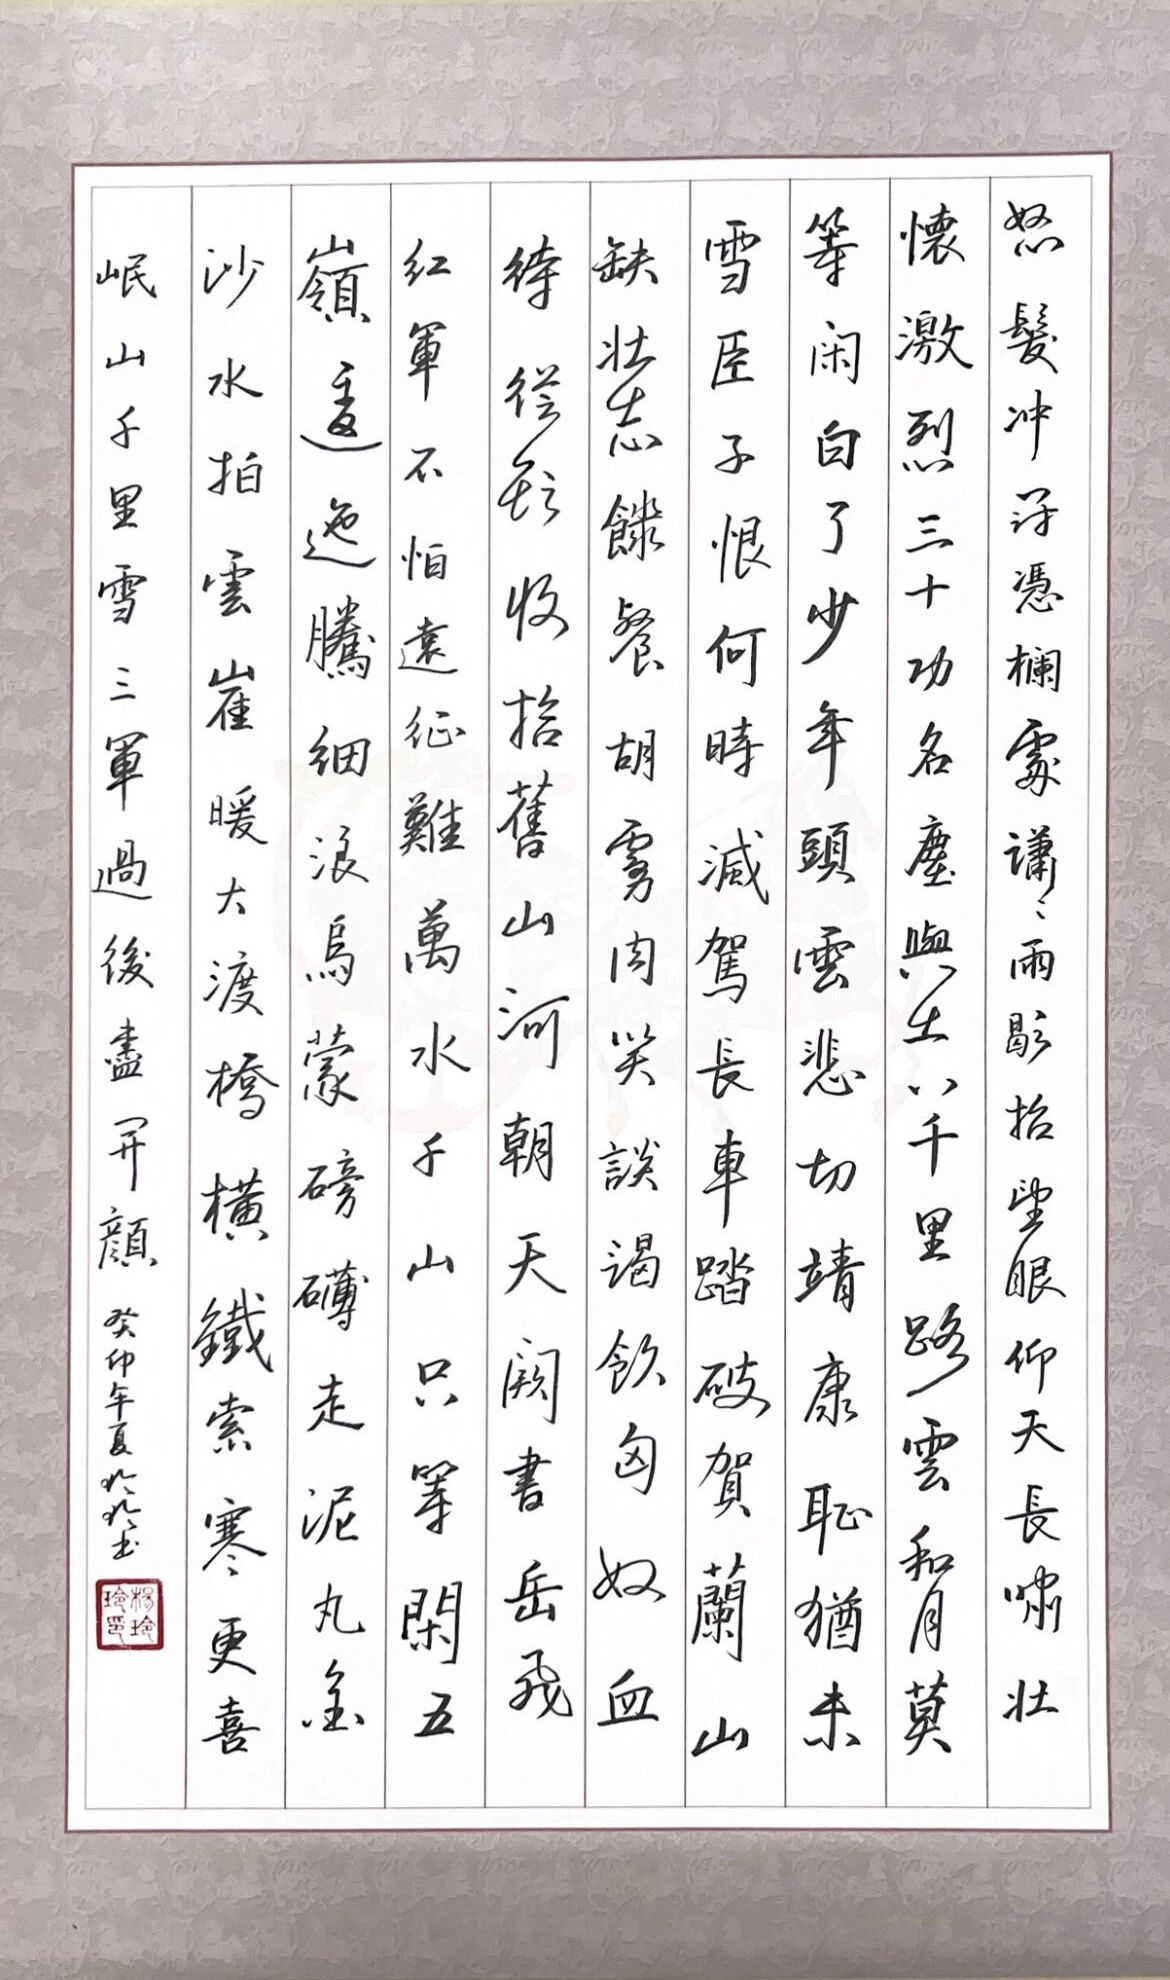 怒髮冲冠憑欄處瀟瀟雨歇抬望眼仰天長嘯壯
懷激烈三十功名塵與土八千里路雲和月莫
等闲白了少年頭雲悲切靖康恥猶未
雪臣子恨何時滅駕長車踏破賀蘭山
缺壯志饑餐胡虜肉笑談渴飲匈奴血
待從頭收拾舊山河朝天闕書岳飛
紅軍不怕遠征難萬水千山只等閑五
嶺逶迤騰細浪烏蒙磅礴走泥丸金
沙水拍雲崖暖大渡橋橫鐵索寒更喜
岷山千里雪三軍過後盡開顏
癸卯年夏玲玲書
楊玲玲印